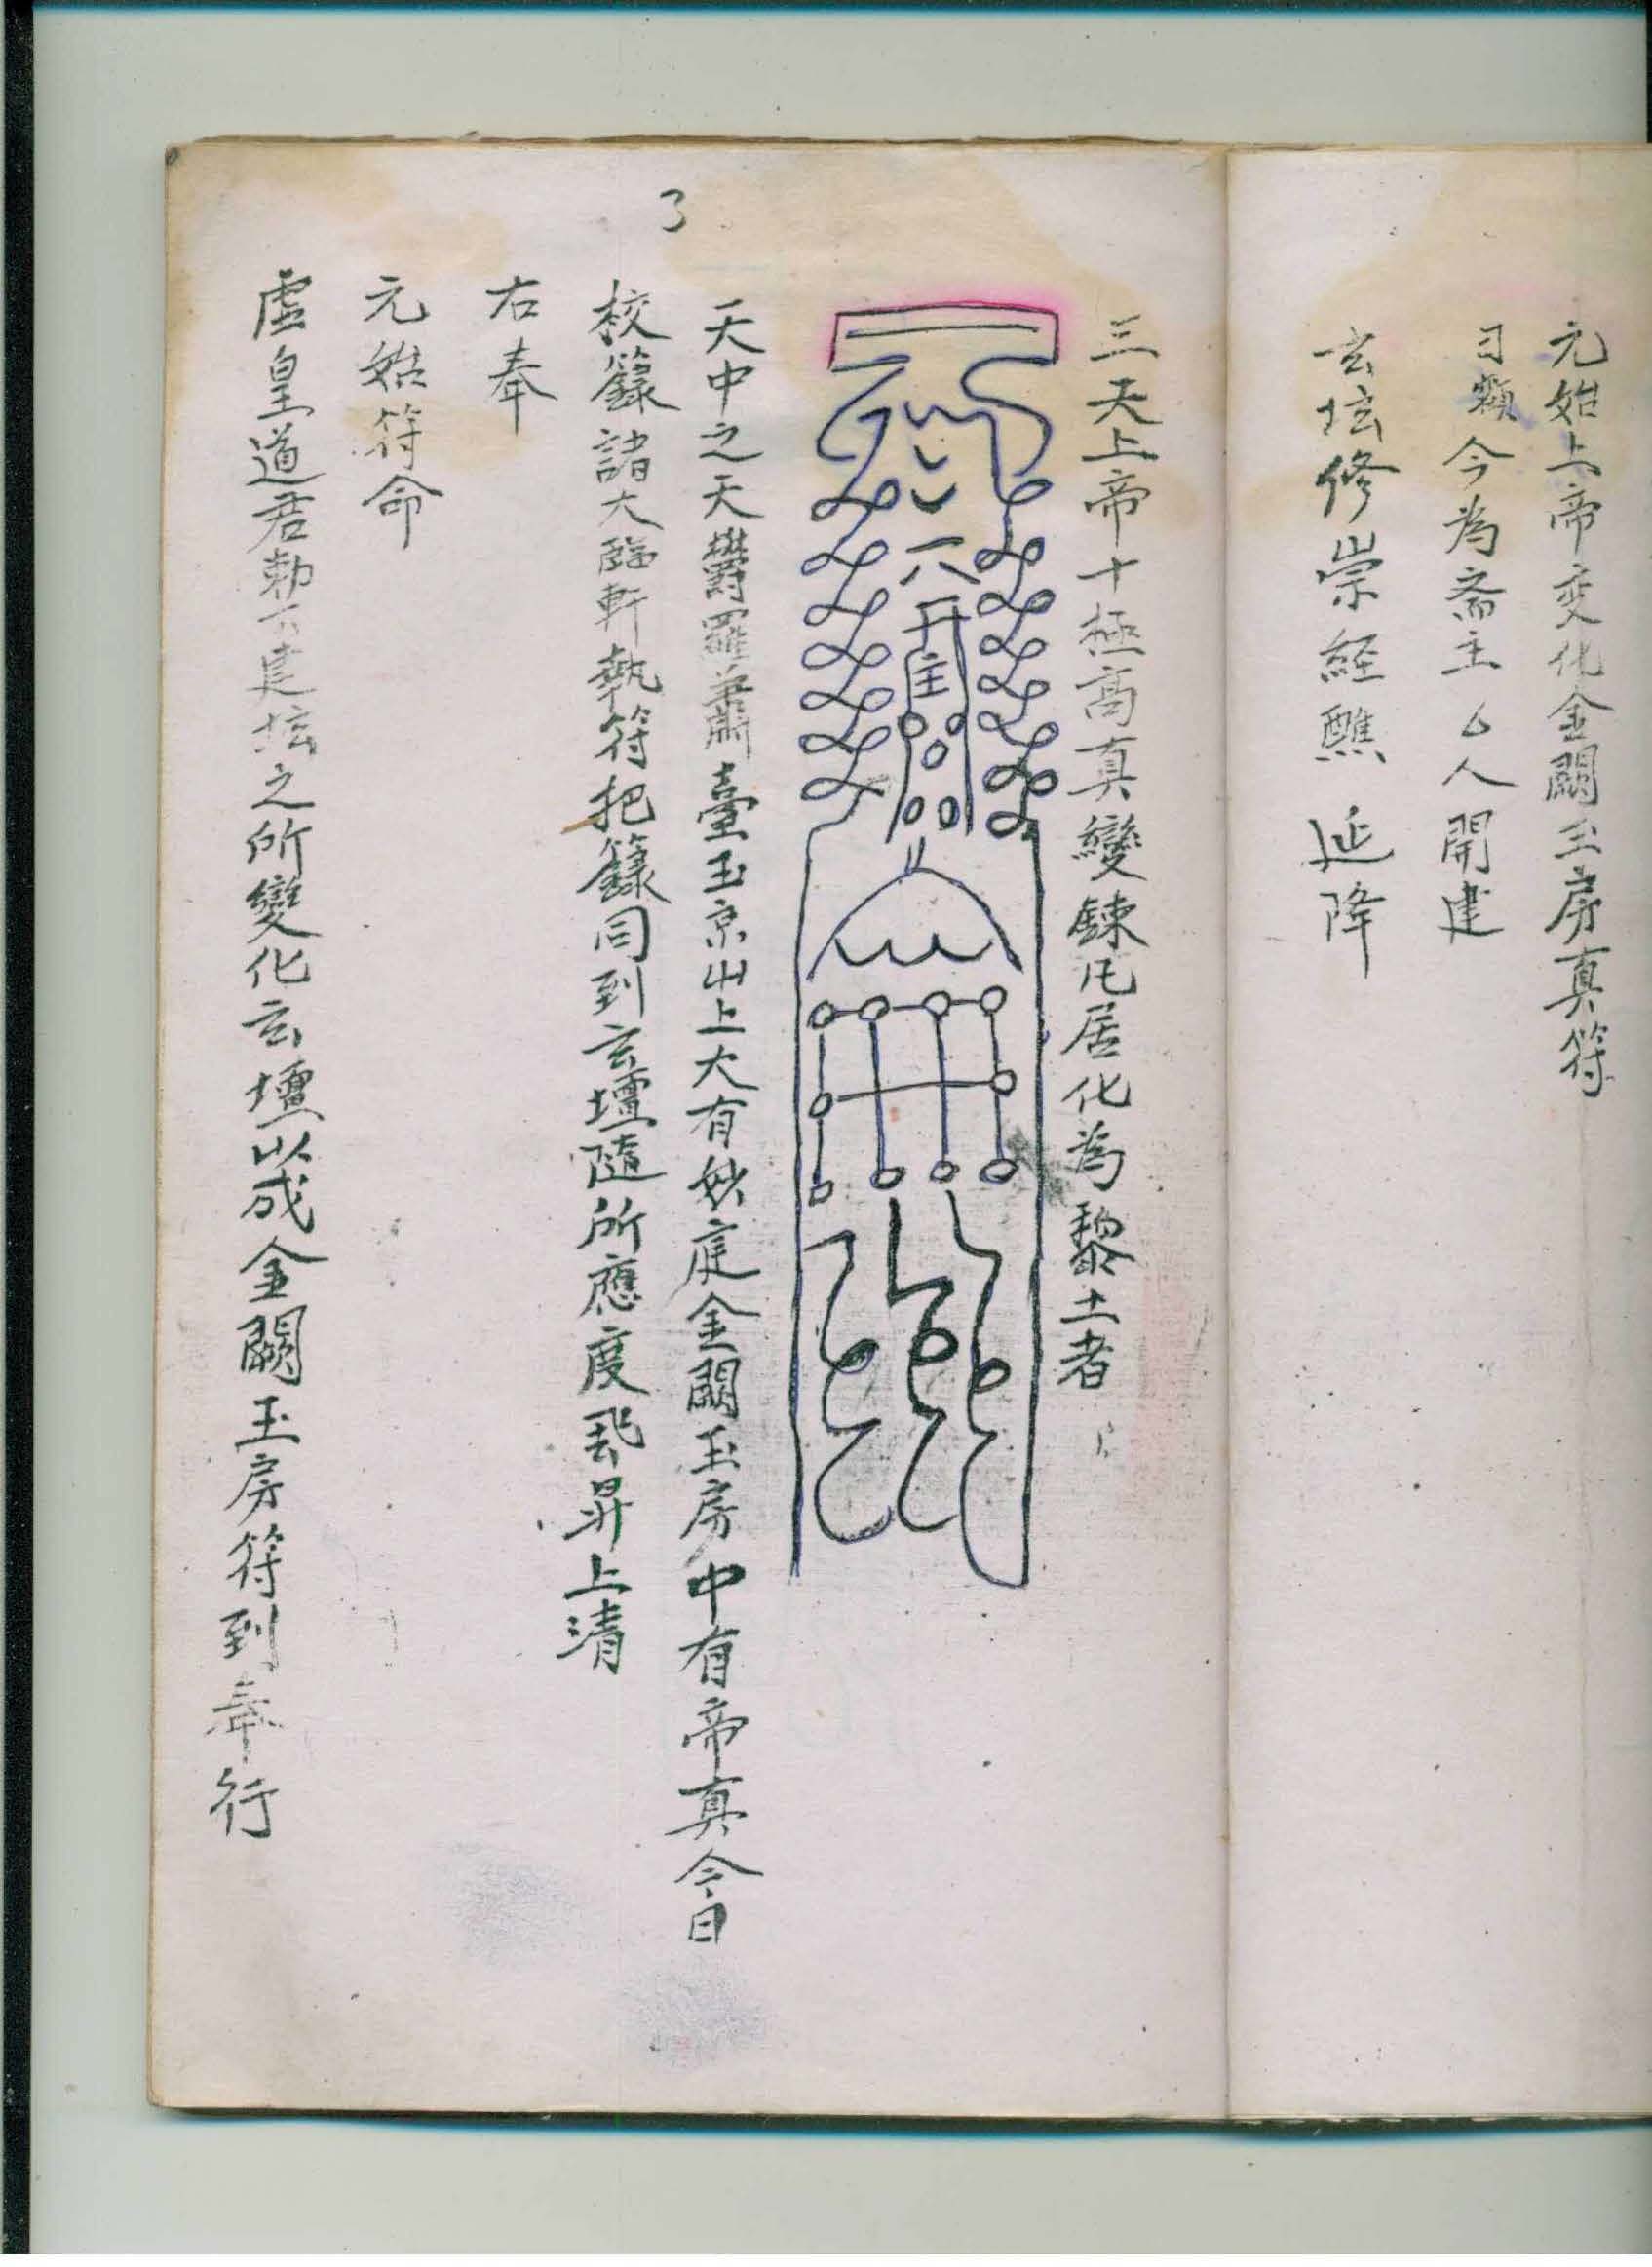 元始上帝变化金闕玉房真符
司額今為斋主厶人開建
玄坛修崇経醮 延降
三天上帝十極高真變鍊凡居化為黎土者
主
天中之天欝羅蕭臺玉京山上大有妙庭金闕玉房中有帝真今日
校籙諸大臨軒執符把籙同到玄壇隨所應度飛昇上清
右奉
元始符命
虛皇道君勅下建坛之所變化玄壇以成金闕玉房符到奉行